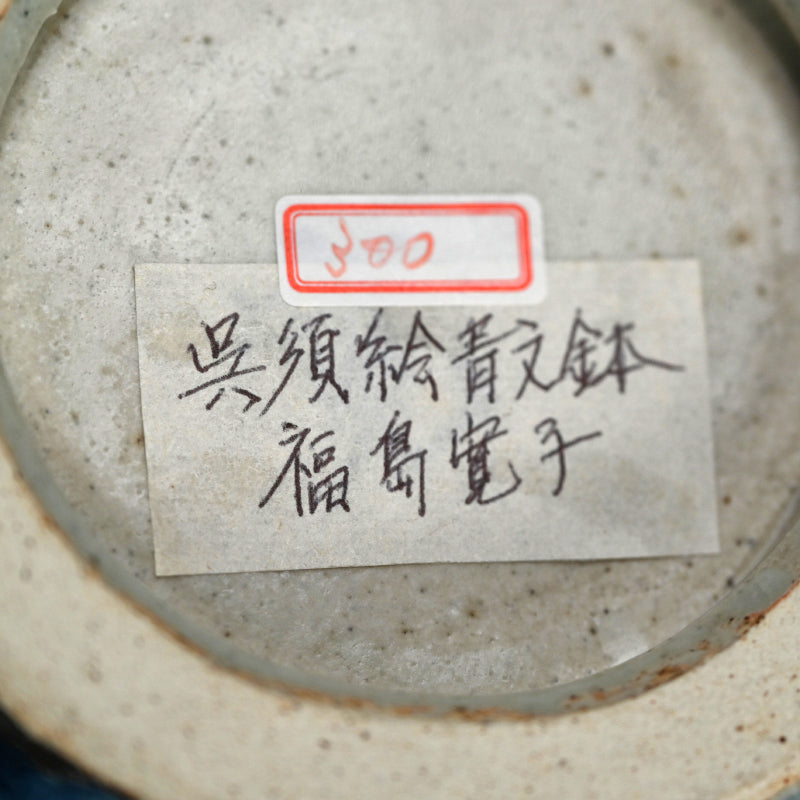 300
呉須絵散文鉢
福島寛子